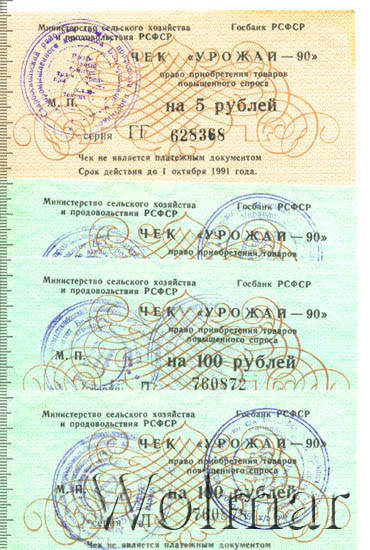 Министерство сельского хозяйства
и продовольствия РСФСР
Госбанк РСФСР
ЧЕК «УРОЖАЙ—90»
право приобретения товаров
повышенного спроса
М. П.
на 5 рублей
серия ГГ 628368
Чек не является платежным документом
Срок действия до 1 октября 1991 года.
Министерство сельского хозяйства
и продовольствия РСФСР
Госбанк РСФСР
ЧЕК «УРОЖАЙ—90»
право приобретения товаров
Министерство сельского хозяйства
и продовольствия РСФСР
Госбанк РСФСР
ЧЕК «УРОЖАЙ—90»
право приобретения товаров
повышенного спроса
М. П.
на 100 рублей
760872
Министерство сельского хозяйства
и продовольствия РСФСР
Госбанк РСФСР
ЧЕК «УРОЖАЙ—90»
право приобретения товаров
повышенного спроса
М. П.
на 100 рублей
серия
Чек не является платежным документом
Wolmar